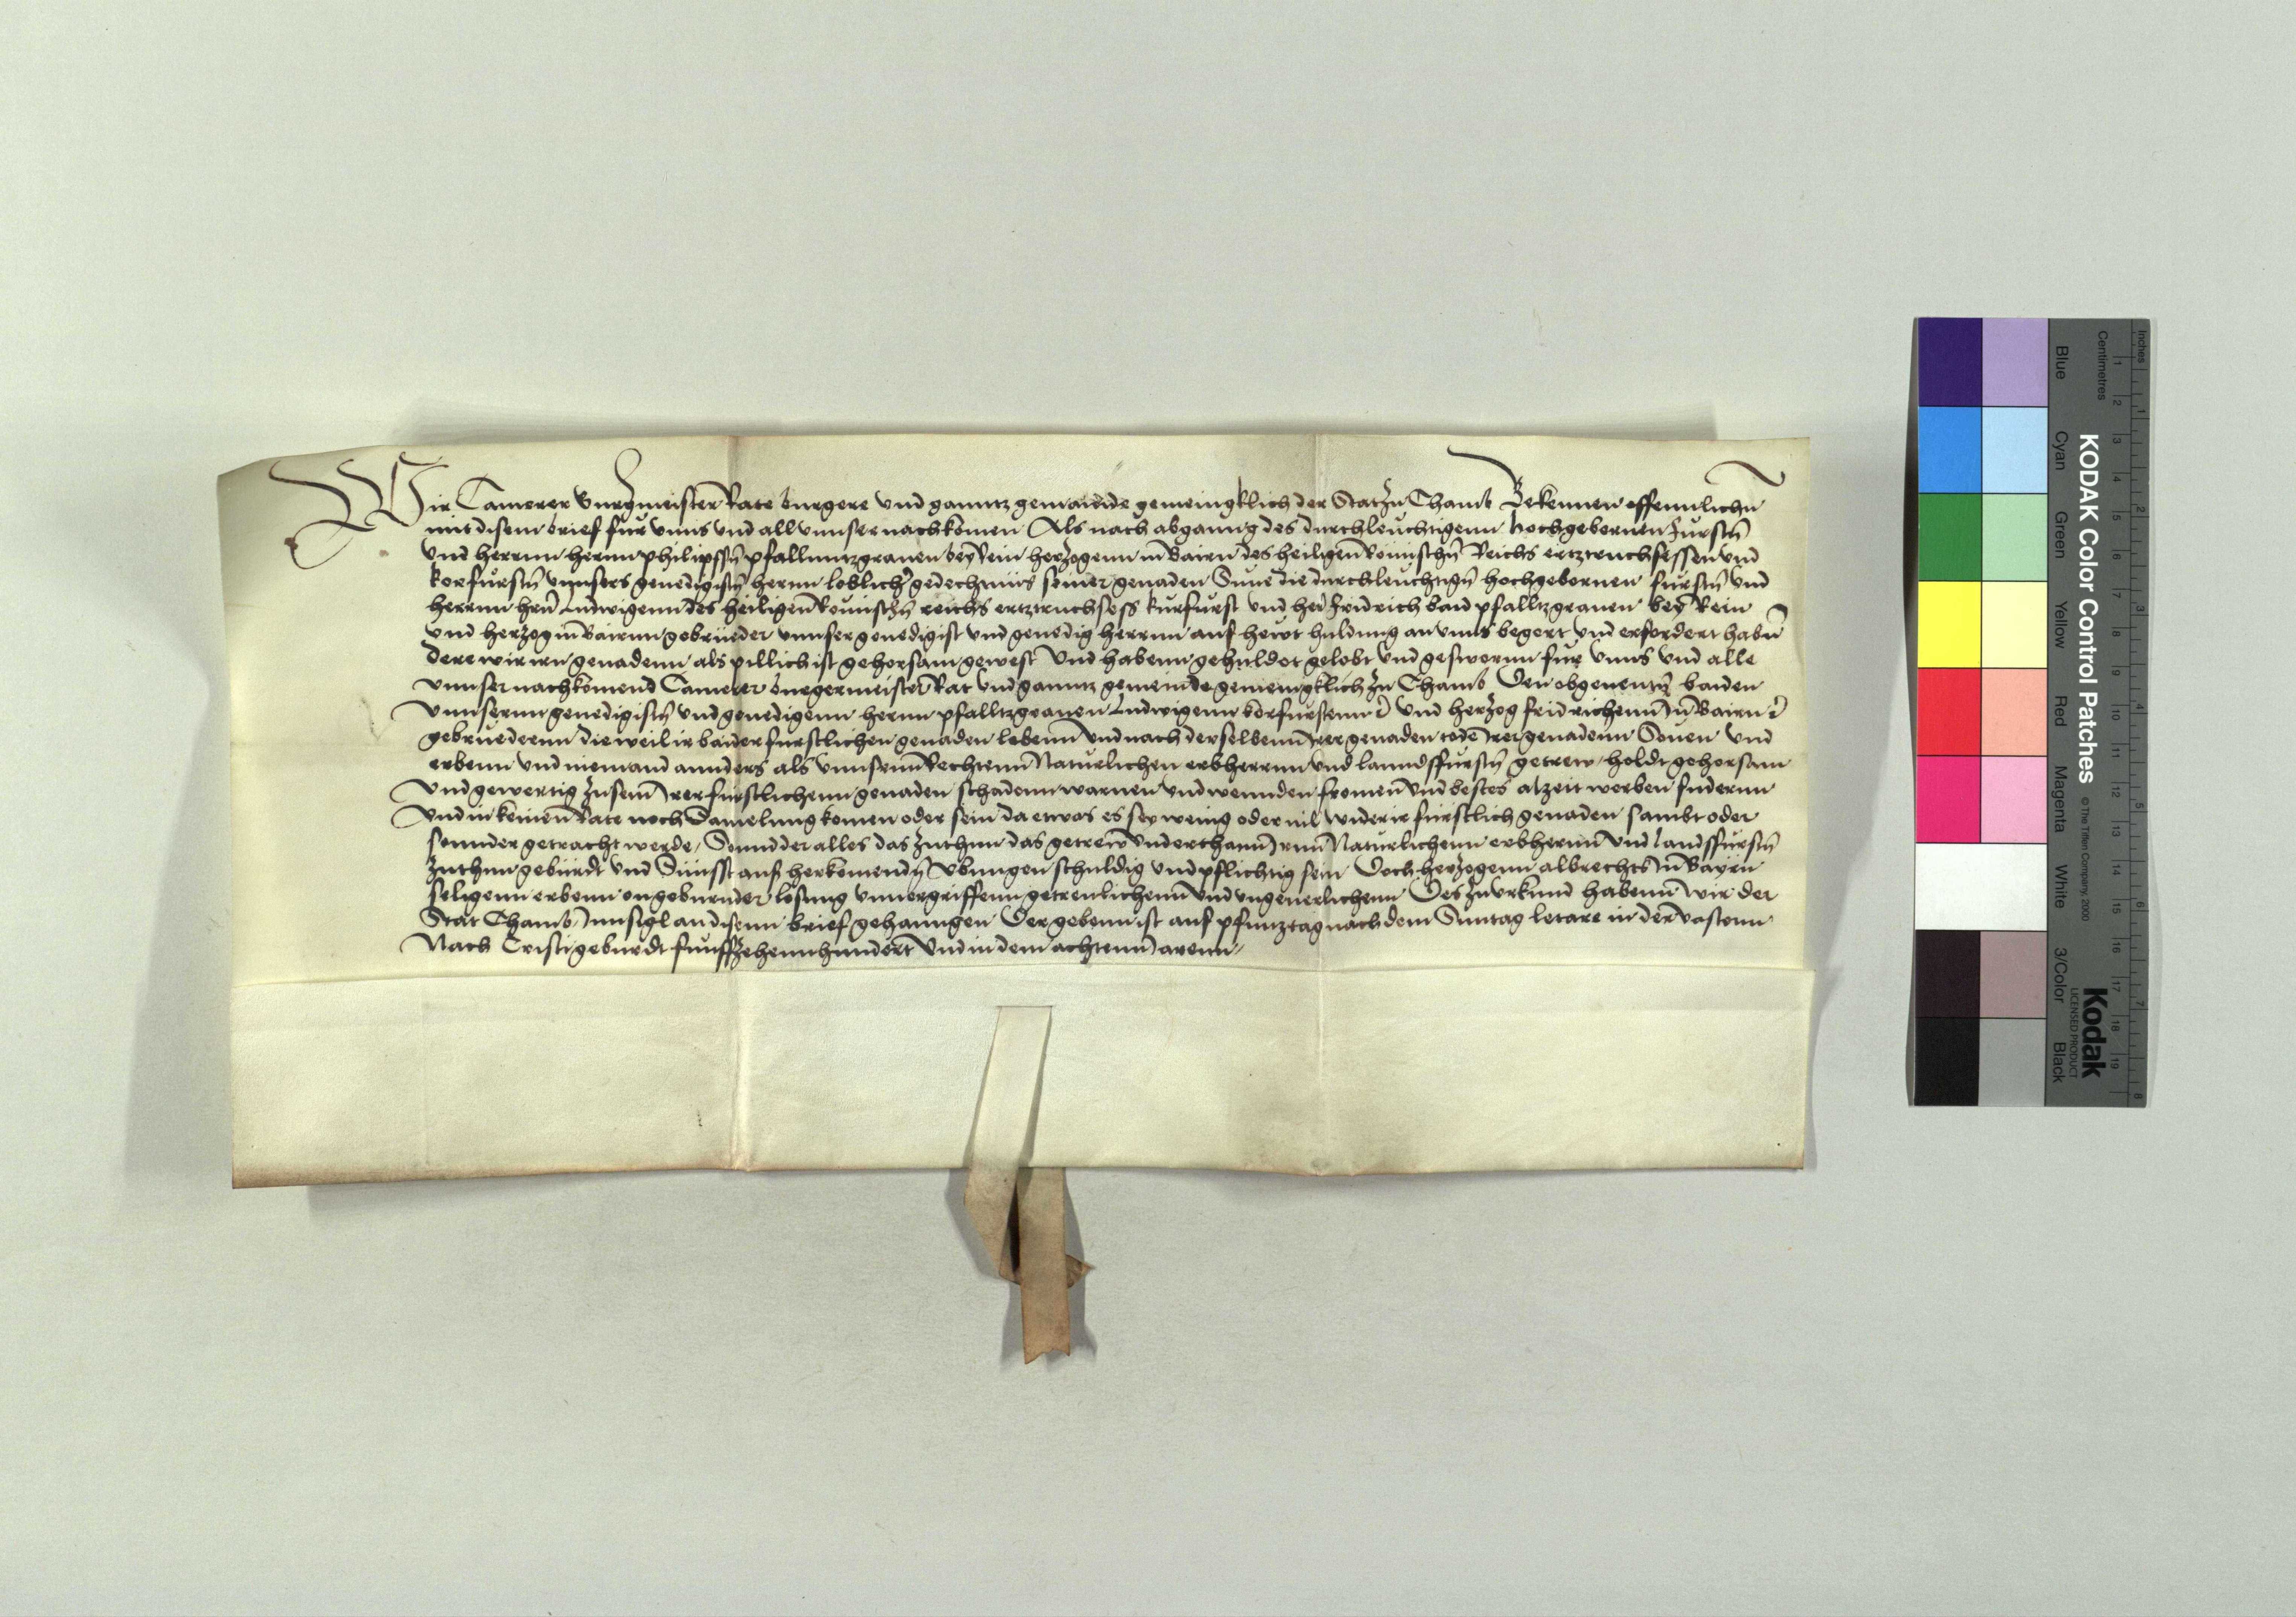 Wir Camerer Burgmeister Rate burgere vnd ganntz gemainde gemeingklich der Stat zu Chamb Bekennen offennlichn
mit disem brief fur vnns vnd all vnnser nachkomen Als nach abganng des durchleuchtigenn hochgebornen Furstn̄
vnd herrnn hernn philipssn̄ pfallnntzgrauen bey Rein herzogenn in Bairn des heiligen̄ Romischn̄ Reichs ertztruchsessen vnd
korfurstn̄ vnnsers genedigistn̄ hernn loblichr̄ gedechtnus seiner genaden Sune die durchleuchtign̄ hochgebornen furstn̄ vnd
herrnn hrn̄ Ludwigenn des heiligen̄ Romischn̄ reichs ertztruchsess kurfurst vnd her Fridrich baid pfalltzgrauen bey Rein
vnd herzog in Bairnn gebrueder vnnser genedigist vnd genedig herrnn auf hewt huldung an vnns begert vnd erfordert habn̄
dere wir irn genadenn als pillich ist gehorsam gewest Vnd habenn gehuldet gelobt vnd geswornn fur vnns vnd alle
vnnser nachkomend Camerer burgermeister Rat vnd ganntz gemeinde gemeingklich zu Chamb Den obgenentn̄ baiden
Vnnsernn genedigistn̄ vnd genedigenn hernn pfalltzgrauen Ludwigenn korfurstenn ꝛc̄ vnd herzog fridrichenn̄ in̄ Bairn ꝛc̄
gebruedernn die weil ir baider furstlichen genaden lebenn̄ vnd nach derselbenn̄ irer genaden tode irer genadenn Sonen vnd
erbenn vnd niemand annders als vnnsernn̄ Rechtenn̄ Naturlichen erbherrnn vnd lanndsfurstn̄ getrew holdt gehorsam
Vnd gewertig zu sein̄ irer furstlichenn genaden schadenn warnen vnd wennden fromen̄ vnd bestes alzeit werben fudernn
Vnd in keinen̄ Rate noch Samelung komen oder sein da etwas es sey wenig oder vil wider ir furstlich genaden sambt oder
sonnder getracht werde / Sonnder alles das zuthun das getrew vnderthann̄ irnn̄ Naturlichenn erbhernn̄ vnd Landsfurstn̄
zuthun geburdt vnd Sunsst auß herkomendn̄ Vbungen schuldig vnd pflichtig sein Doch herzogenn albrechts in̄ Bayrn
seligenn erbenn on geburnder losung vnuergriffenn getreulichenn̄ vnd vngeuerlichenn Des zu vrkund habenn̄ wir der
Stat Chamb Innsigl an disenn brief gehanngen Der geben̄ ist auf pfinztag nach dem Sunntag letare in der vastenn
Nach Cristi geburdt funffzehennhundert Vnd in dem achtenn̄ Jarenn
KODAK Color Control Patches © The Tiffen Company, 2000
Kodak
LICENSED PRODUCT
Inches 1 2 3 4 5 6 7 8
Centimetres 1 2 3 4 5 6 7 8 9 10 11 12 13 14 15 16 17 18 19
Blue Cyan Green Yellow Red Magenta White 3/Color Black